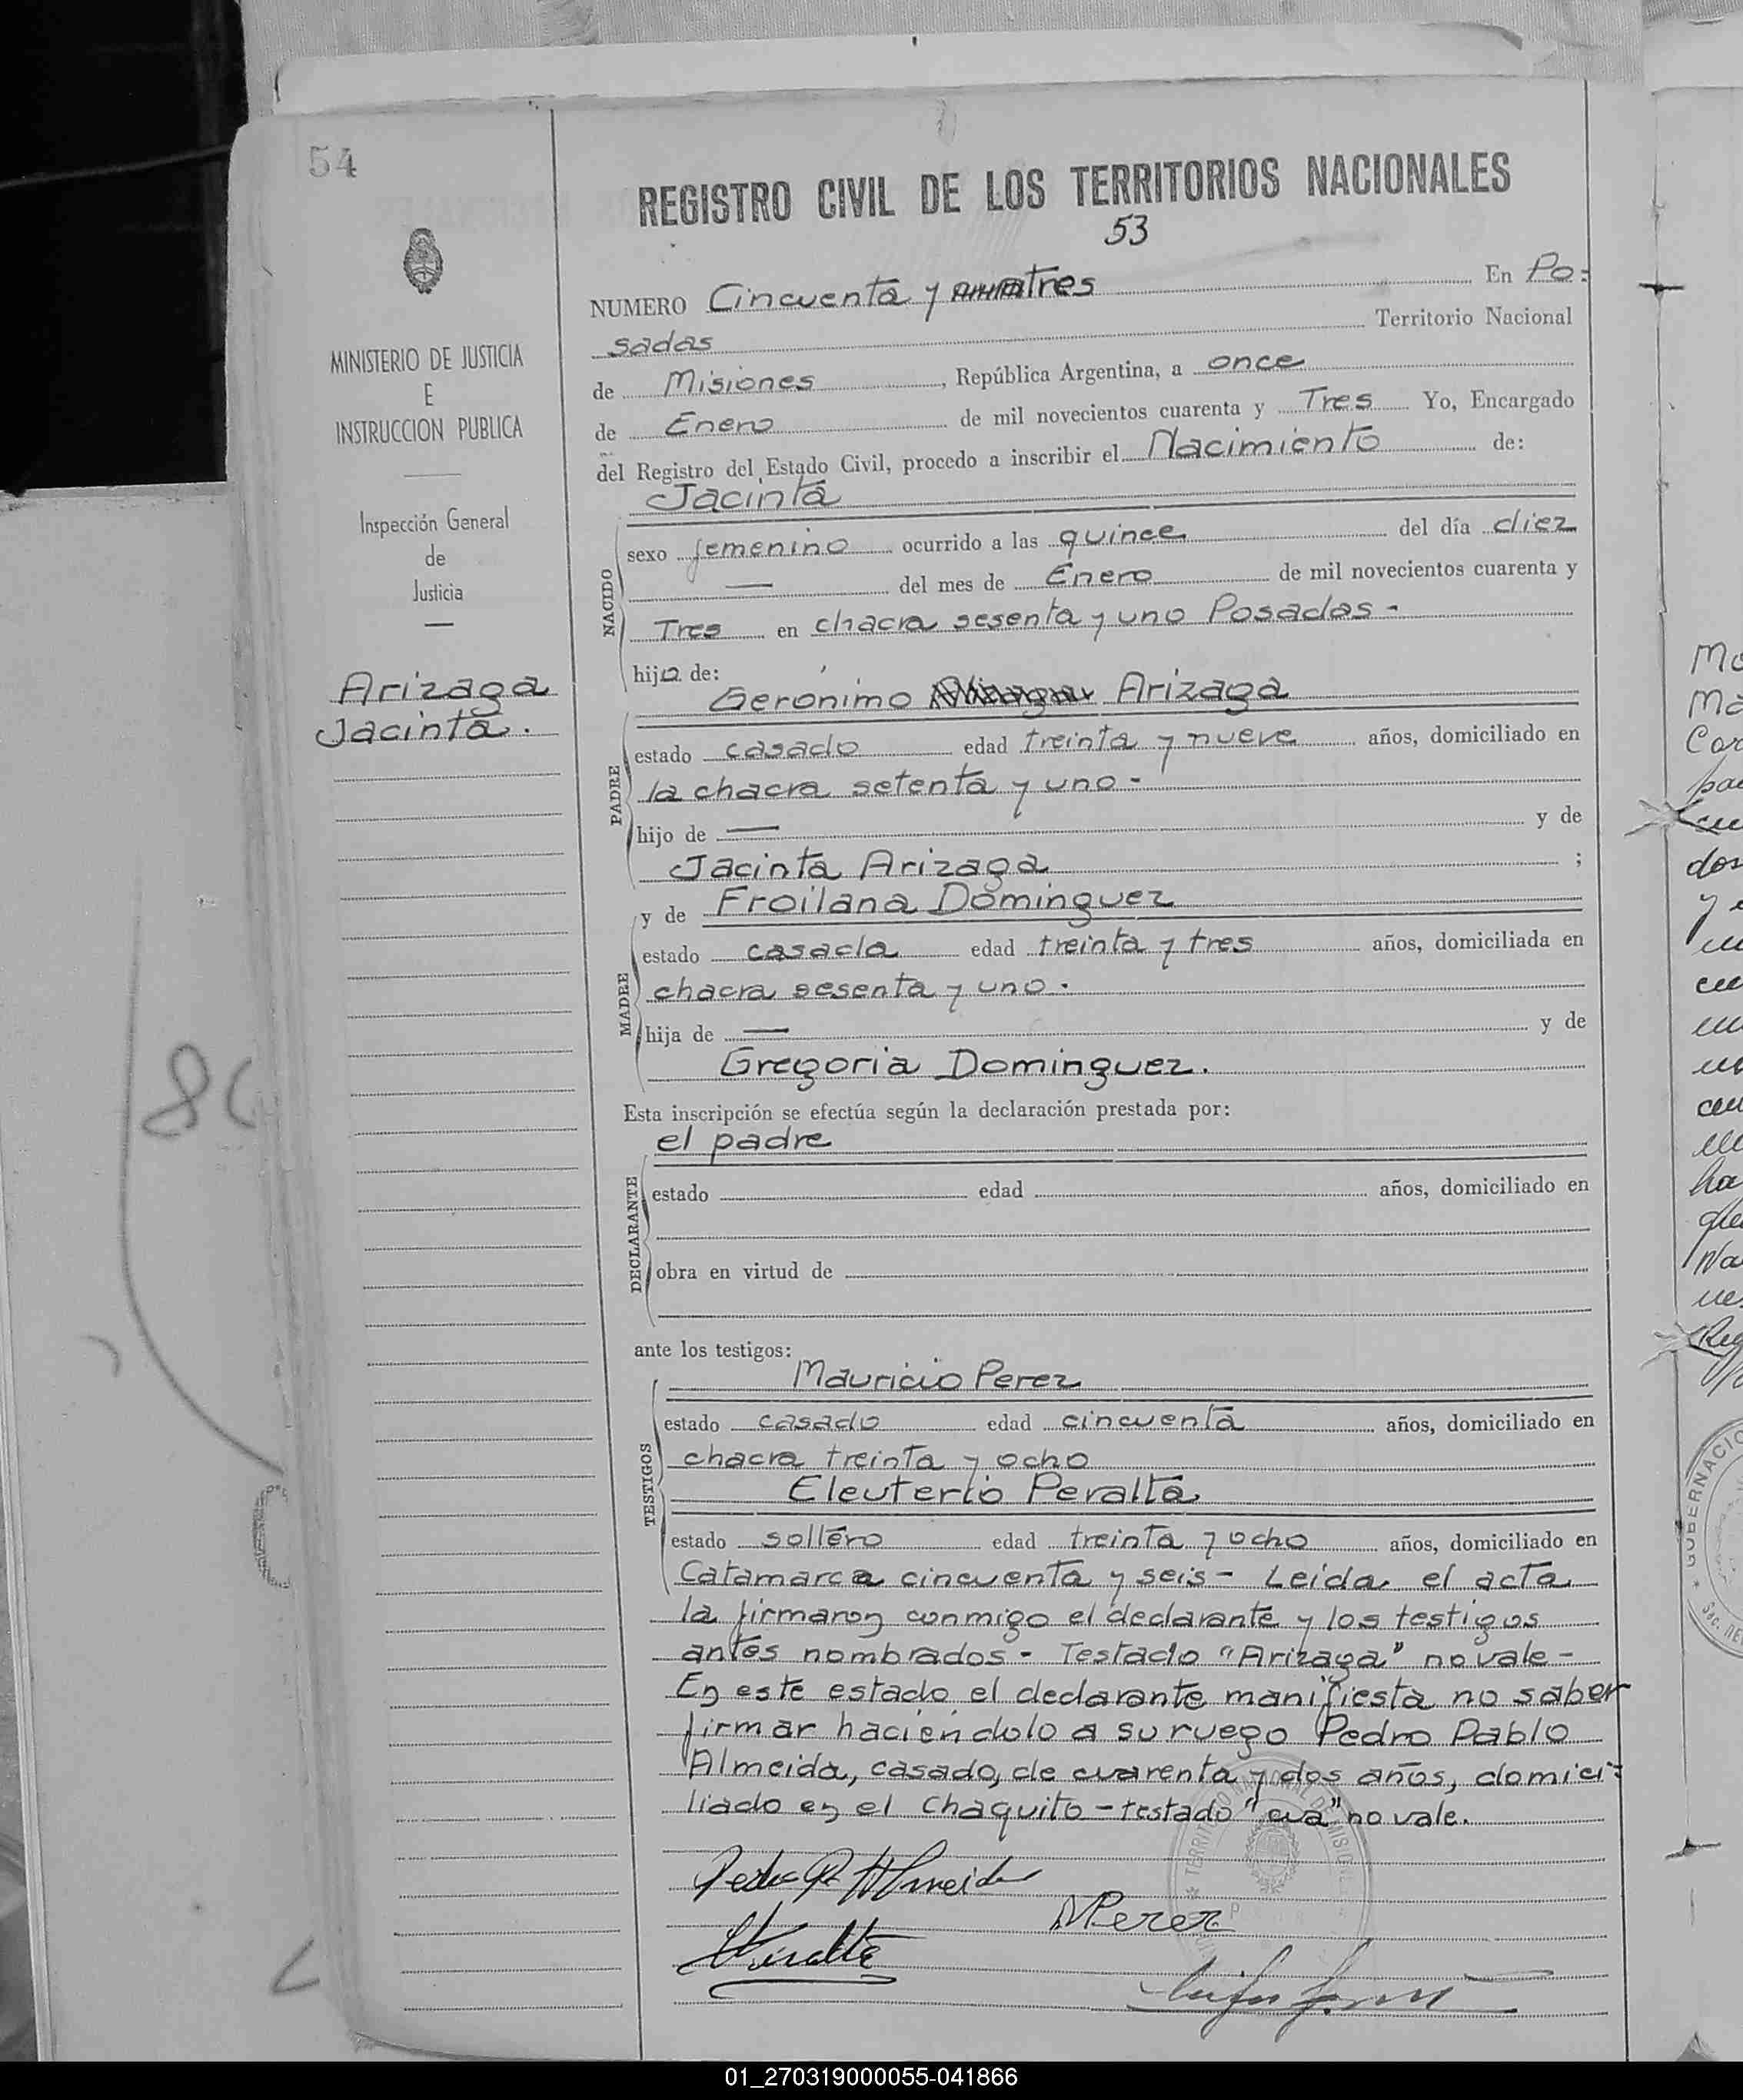 54
REGISTRO CIVIL DE LOS TERRITORIOS NACIONALES
53
NUMERO Cincuenta y tres En Po=
sadas Territorio Nacional
de Misiones, República Argentina, a once
de Enero de mil novecientos cuarenta y Tres Yo, Encargado
del Registro del Estado Civil, procedo a inscribir el Nacimiento de:
Jacinta
NACIDO
sexo femenino ocurrido a las quince del día diez
— del mes de Enero de mil novecientos cuarenta y
Tres en chacra sesenta y uno Posadas -
hija de:
Geronimo Arizaga
PADRE
estado casado edad treinta y nueve años, domiciliado en
la chacra setenta y uno -
hijo de — y de
Jacinta Arizaga ;
y de Froilana Dominguez
MADRE
estado casada edad treinta y tres años, domiciliada en
chacra sesenta y uno .
hija de — y de
Gregoria Dominguez.
Esta inscripción se efectúa según la declaración prestada por:
el padre
DECLARANTE
estado edad años, domiciliado en
obra en virtud de
ante los testigos:
Mauricio Perez
TESTIGOS
estado casado edad cincuenta años, domiciliado en
chacra treinta y ocho
Eleuterio Peralta
estado soltéro edad treinta y ocho años, domiciliado en
Catamarca cincuenta y seis - Leida el acta
la firmaron conmigo el declarante y los testigos
antes nombrados - Testado "Arizaga" no vale -
En este estado el declarante manifiesta no saber
firmar haciendolo a su ruego Pedro Pablo
Almeida, casado, de cuarenta y dos años, domici=
liado en el Chaquito - testado "cua" no vale.
Pedro P. Almeida
MPerez
MINISTERIO DE JUSTICIA
E
INSTRUCCION PUBLICA
Inspección General
de
Justicia
Arizaga
Jacinta .
01_270319000055-041866